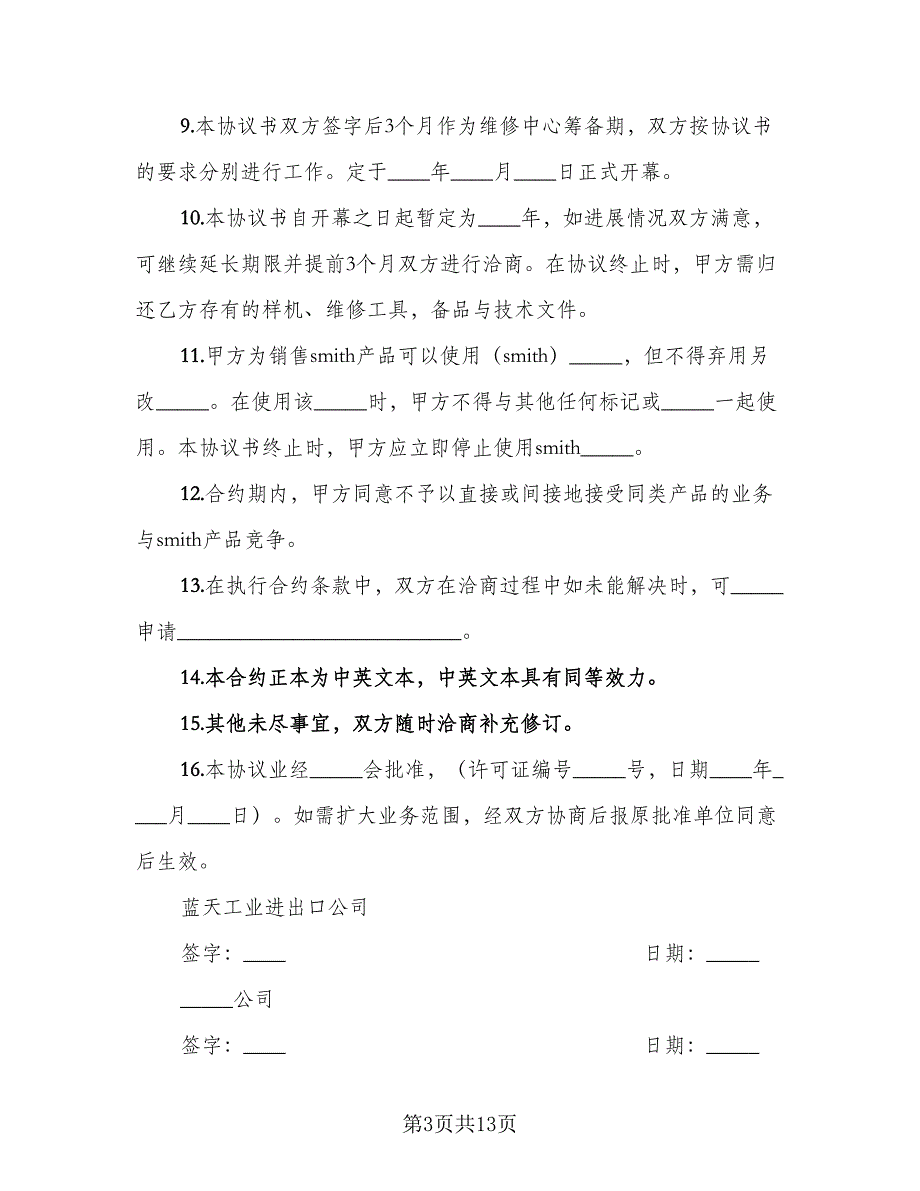 9.本协议书双方签字后3个月作为维修中心筹备期，双方按协议书
的要求分别进行工作。定于____年____月____日正式开幕。
10.本协议书自开幕之日起暂定为____年，如进展情况双方满意，
可继续延长期限并提前3个月双方进行洽商。在协议终止时，甲方需归
还乙方存有的样机、维修工具，备品与技术文件。
11.甲方为销售smith产品可以使用（smith）_____，但不得弃用另
改_____。在使用该_____时，甲方不得与其他任何标记或_____一起使
用。本协议书终止时，甲方应立即停止使用smith_____。
12.合约期内，甲方同意不予以直接或间接地接受同类产品的业务
与smith产品竞争。
13.在执行合约条款中，双方在洽商过程中如未能解决时，可_____
申请___________________________。
14.本合约正本为中英文本，中英文本具有同等效力。
15.其他未尽事宜，双方随时洽商补充修订。
16.本协议业经_____会批准，（许可证编号_____号，日期____年_
___月____日）。如需扩大业务范围，经双方协商后报原批准单位同意
后生效。
蓝天工业进出口公司
签字：____ 日期：_____
_____公司
签字：____ 日期：_____
第3页共13页